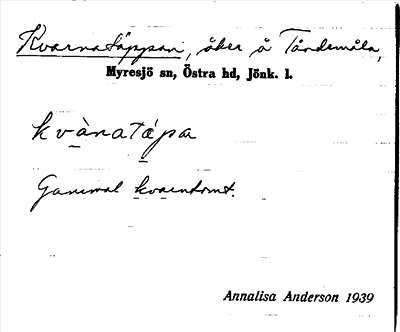 Kvarnatäppan, åker å Tåndemåla,
Myresjö sn, Östra hd, Jönk. l.
kvànatápa
Gammal kvarntomt.
Annalisa Anderson 1939